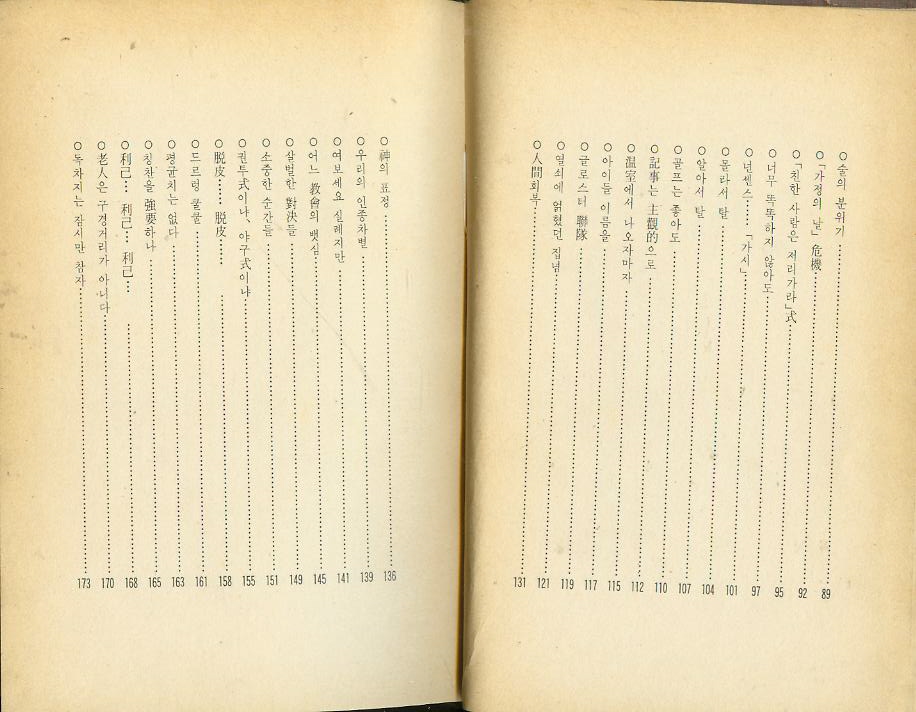 ○ 술의 분위기 89
○ 「가정의 날」 危機 92
○ 「친한 사람은 저리가라」式 95
○ 너무 똑똑하지 않아도 97
○ 넌센스……「가시」 101
○ 몰라서 탈 104
○ 알아서 탈 107
○ 골프는 좋아도 110
○ 記事는 主觀的으로 112
○ 温室에서 나오자마자 115
○ 아이들 이름을 117
○ 글로스터 聯隊 119
○ 열쇠에 얽혔던 집념 121
○ 人間회복 131
○ 神의 표정 136
○ 우리의 인종차별 139
○ 여보세요 실례지만 141
○ 어느 教會의 뱃심 145
○ 살벌한 對決들 149
○ 소중한 순간들 151
○ 권투式이냐, 야구式이냐 155
○ 脱皮…… 脱皮…… 158
○ 드르렁 쿨쿨 161
○ 평균치는 없다 163
○ 칭찬을 強要하나 165
○ 利己… 利己… 利己… 168
○ 老人은 구경거리가 아니다 170
○ 독차지는 잠시만 참자 173